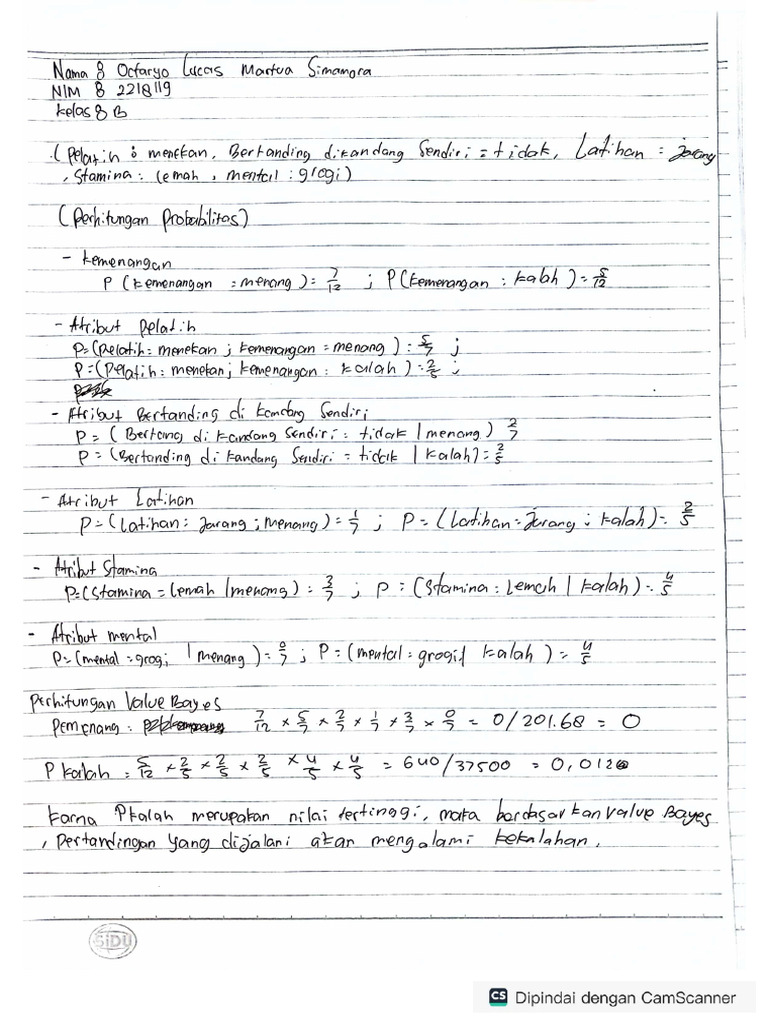 Nama : Octaryo Lucas Martua Simamora
NIM : 2218119
Kelas : B
(Pelatih : menekan, Bertanding dikandang Sendiri = tidak, Latihan : jarang
, Stamina : lemah, mental : grogi)
(Perhitungan Probabilitas)
- Kemenangan
P (Kemenangan : menang) = 7/12 ; P(Kemenangan : Kalah) = 5/12
- Atribut Pelatih
P=(Pelatih : menekan ; Kemenangan = menang) : 5/7 ;
P=(Pelatih : menekan ; Kemenangan : Kalah) = 2/5 ;
- Atribut Bertanding di Kandang Sendiri
P = (Bertang di Kandang Sendiri : tidak | menang) 2/7
P = (Bertanding di Kandang Sendiri = tidak | Kalah) = 2/5
- Atribut Latihan
P=(Latihan : Jarang ; Menang) = 1/7 ; P=(Latihan = Jarang ; Kalah) = 2/5
- Atribut Stamina
P=(Stamina = Lemah | menang) : 3/7 ; P = (Stamina : Lemah | Kalah) = 4/5
- Atribut mental
P=(mental = grogi | menang) = 0/7 ; P=(mental : grogi | Kalah) = 4/5
Perhitungan Value Bayes
Pemenang : 7/12 × 5/7 × 2/7 × 1/7 × 3/7 × 0/7 = 0/201.68 = 0
P Kalah = 5/12 × 2/5 × 2/5 × 2/5 × 4/5 × 4/5 = 640/37500 = 0,012
Karna Pkalah merupakan nilai tertinggi, maka berdasarkan value Bayes
, Pertandingan yang dijalani akan mengalami kekalahan.
SiDU
CS Dipindai dengan CamScanner